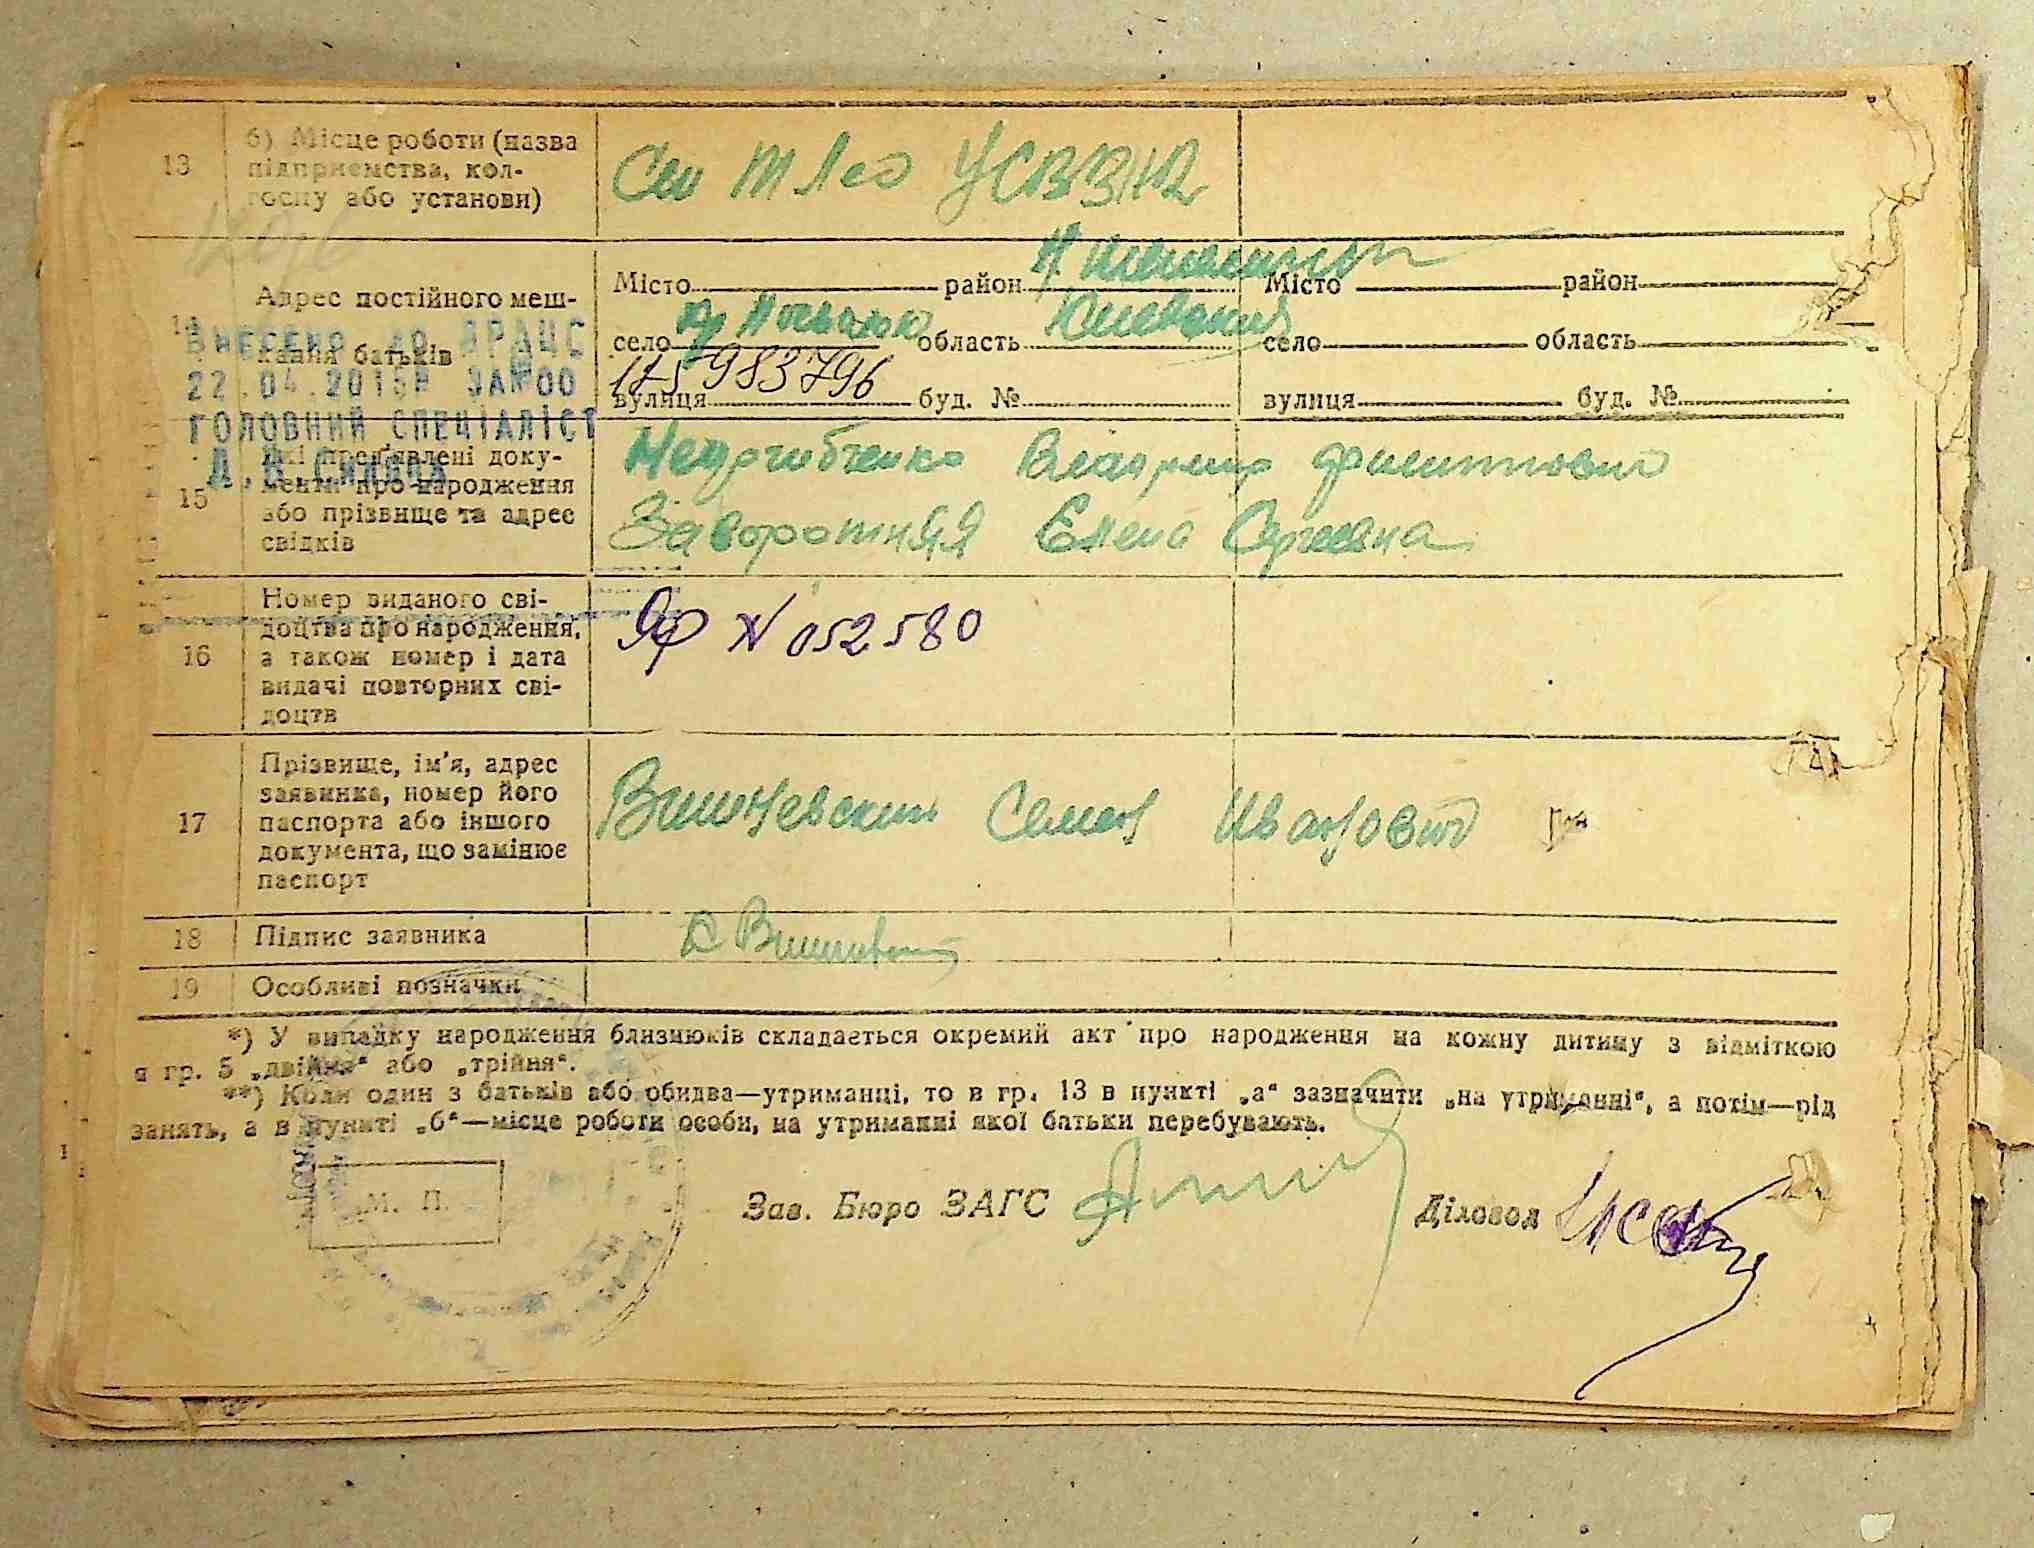 13
б) Місце роботи (назва
підприємства, кол-
госпу або установи)
УСВЗИВ
14
Адрес постійного меш-
кання батьків
Місто район
село область Киевская
вулиця буд. №
175983796
Місто район
село область
вулиця буд. №
ВНЕСЕНО ДО ДРАЦС
22.04.2015Р ЗА№00
ГОЛОВНИЙ СПЕЦІАЛІСТ
15
Які пред'явлені доку-
менти про народження
або прізвище та адрес
свідків
Владимир Филиппович
Заворотняя Елена Сергеевна
16
Номер виданого сві-
доцтва про народження,
а також номер і дата
видачі повторних сві-
доцтв
ЯФ N 052580
17
Прізвище, ім'я, адрес
заявника, номер його
паспорта або іншого
документа, що замінює
паспорт
Вишневский Семен Иванович
18
Підпис заявника
С Вишневский
19
Особливі позначки
*) У випадку народження близнюків складається окремий акт про народження на кожну дитину з відміткою
я гр. 5 „двійня“ або „трійня“.
**) Коли один з батьків або обидва—утриманці, то в гр. 13 в пункті „а“ зазначити „на утриманні“, а потім—рід
занять, а в пункті „б“—місце роботи особи, на утриманні якої батьки перебувають.
М. П.
Зав. Бюро ЗАГС
Діловод